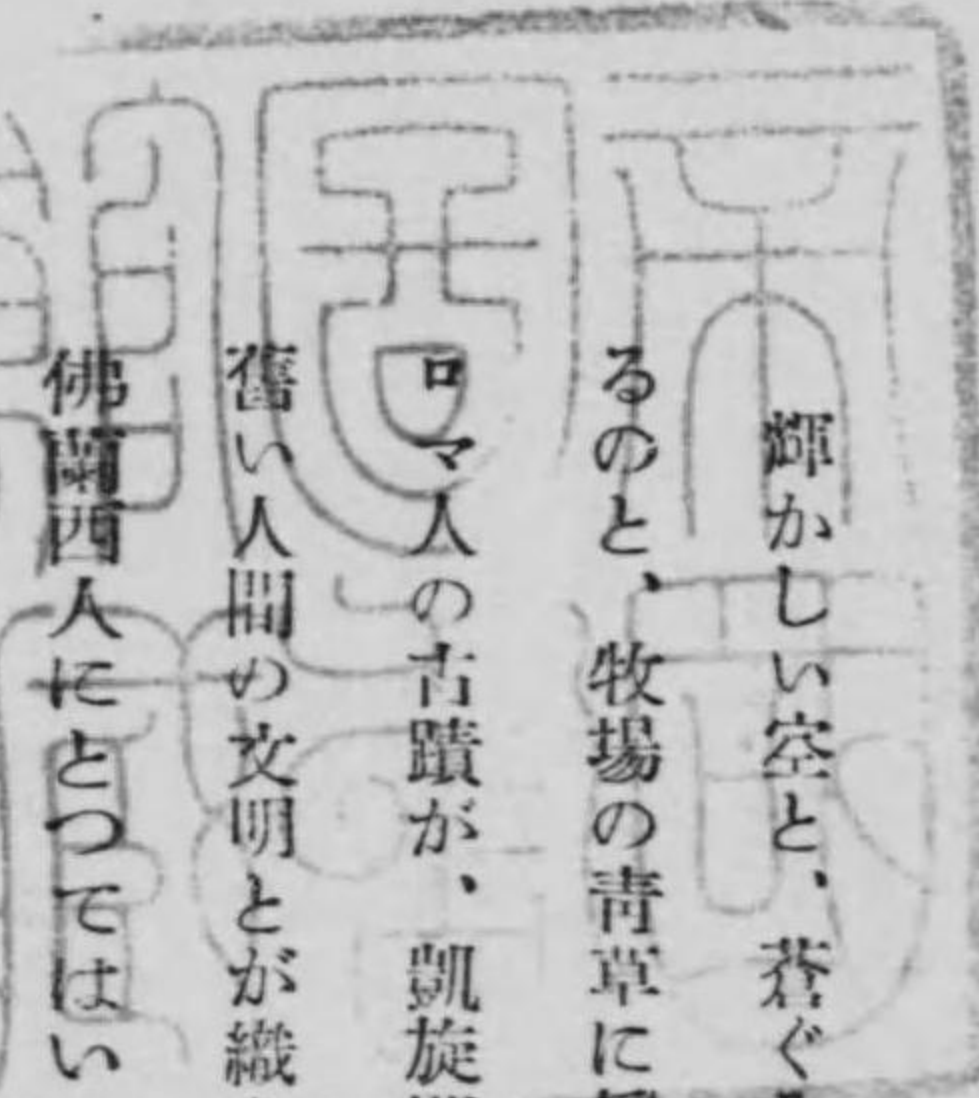 輝かしい空と、蒼ぐ
るのと、牧場の靑草に
ロマ人の古蹟が、凱旋
舊い人間の文明とが織
佛蘭西人にとつてはい